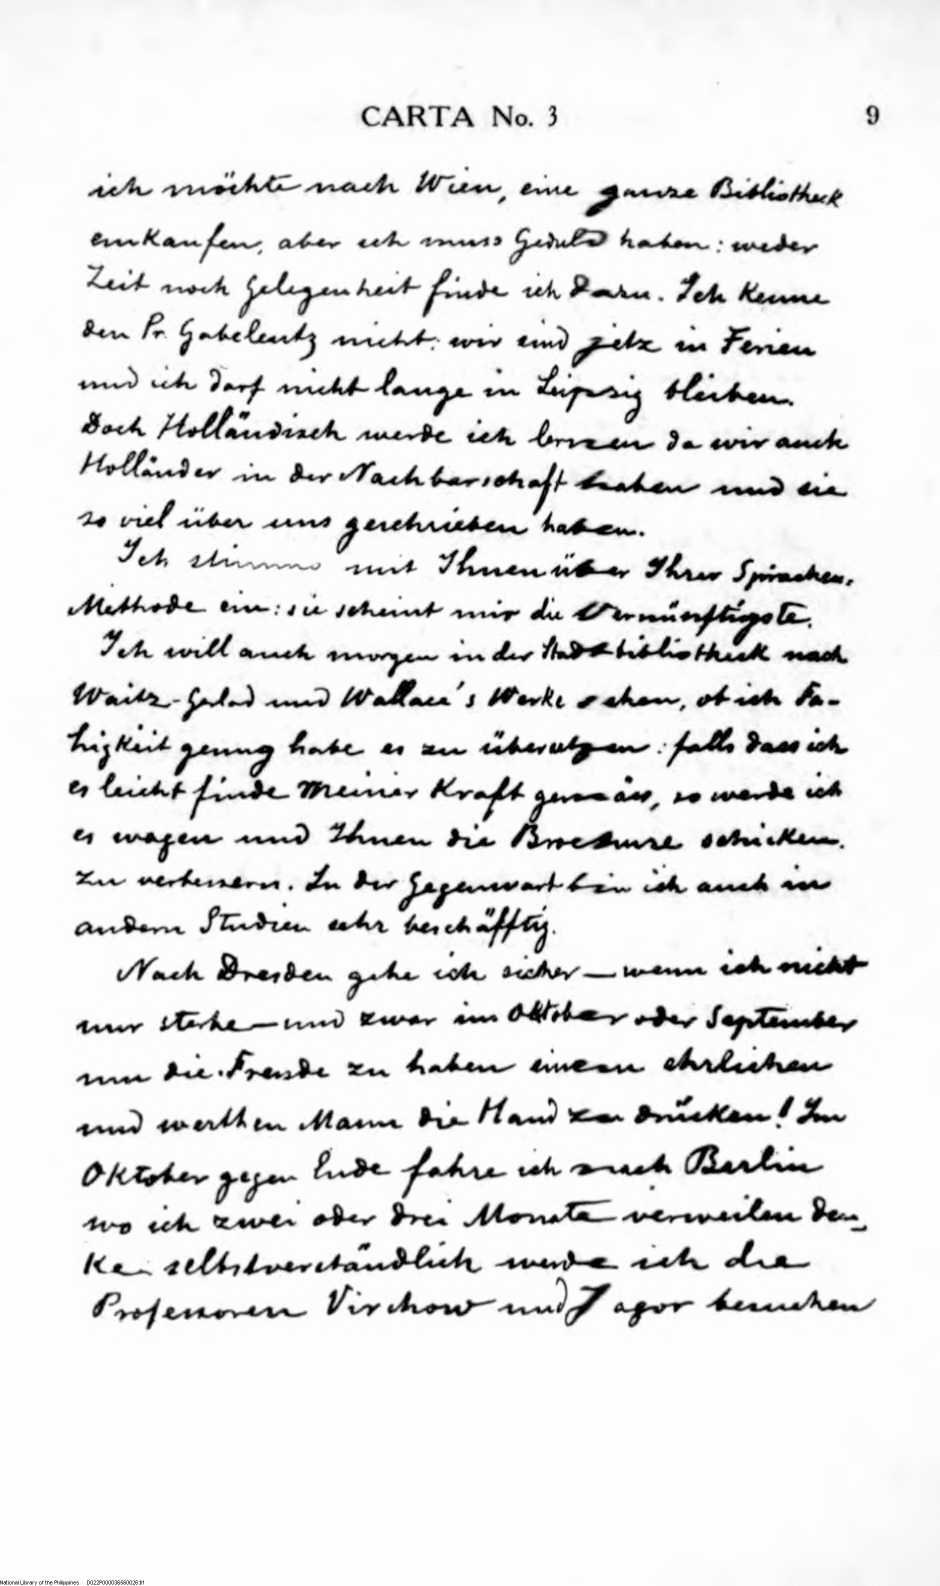 CARTA No. 3 9
ich möchte nach Wien, eine ganze Bibliotheck
einkaufen, aber ich muss Geduld haben: weder
Zeit noch Gelegenheit finde ich dazu. Ich kenne
den Pr. Gabelentz nicht: wir sind jetz in Ferien
und ich darf nicht lange in Leipzig bleiben.
Doch Holländisch werde ich lernen da wir auch
Holländer in der Nachbarschaft haben und sie
so viel über uns geschrieben haben.
Ich stimme mit Ihnen über Ihrer Sprachen-
Methode ein: sie scheint mir die Vernünftigste.
Ich will auch morgen in der Stadtbibliotheck nach
Waitz-Gerlad und Wallace's Werke sehen, ob ich Fä-
higkeit genug habe es zu übersetzen: falls dass ich
es leicht finde meiner Kraft gemäss, so werde ich
es wagen und Ihnen die Brochure schicken.
zu verbessern. In der Gegenwart bin ich auch in
andern Studien sehr beschäfftig.
Nach Dresden gehe ich sicher—wenn ich nicht
nur sterbe—und zwar im Oktober oder September
um die Freude zu haben einem ehrlichen
und werthen Mann die Hand zu drücken! Im
Oktober gegen Ende fahre ich nach Berlin
wo ich zwei oder drei Monate verweilen den-
ke selbstverständlich werde ich die
Professoren Virchow und Jagor besuchen
National Library of the Philippines